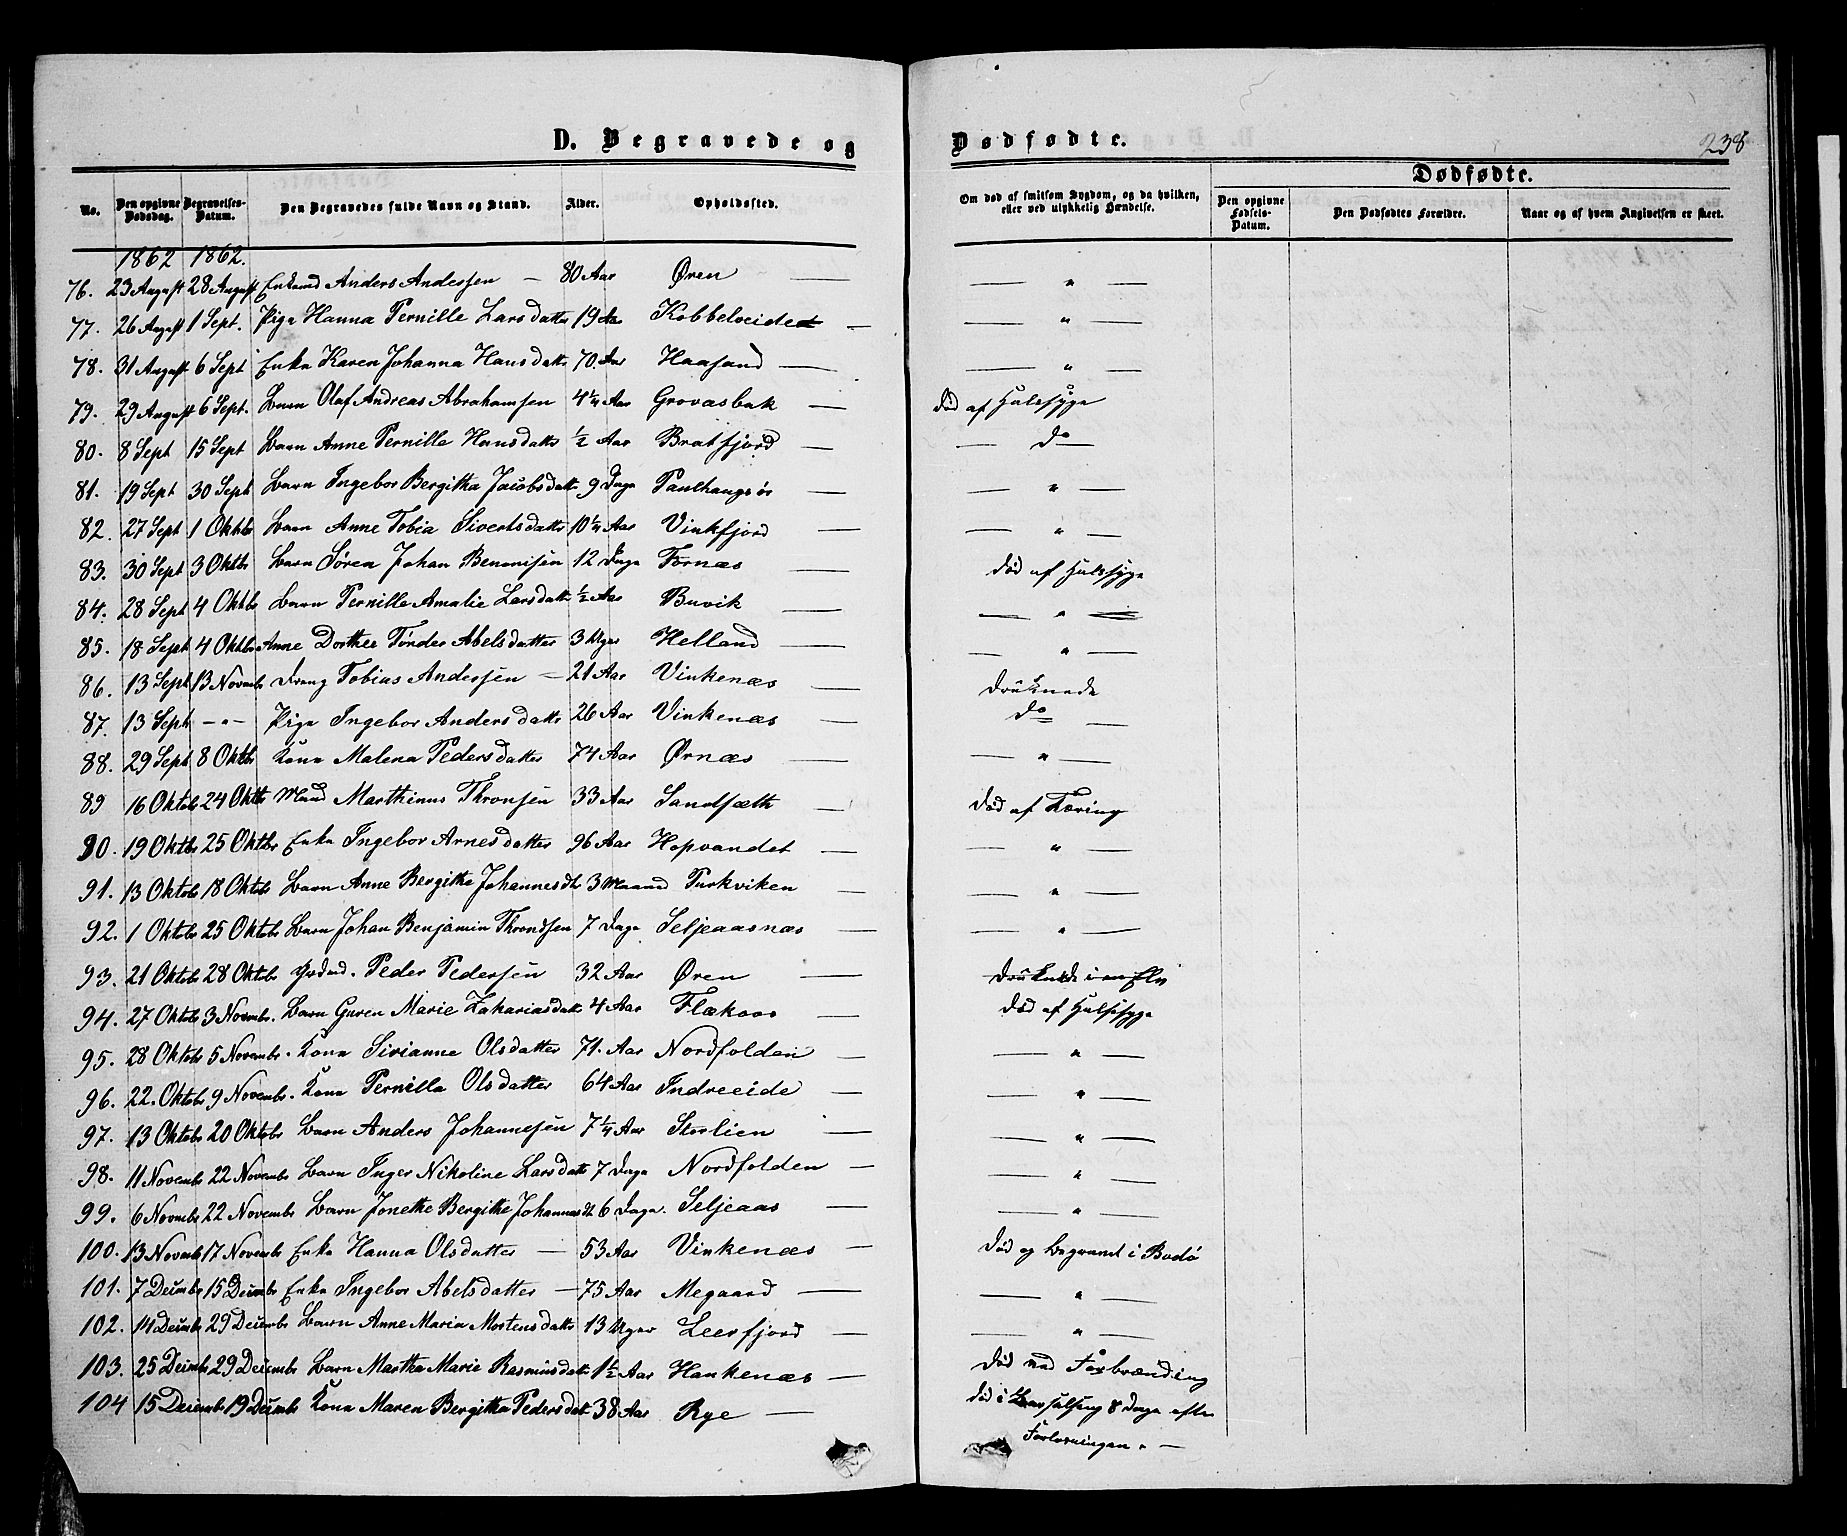 D. Begravede og Dødfødte.
238
Dødfødte.
No. Den opgivne Dødsdag. Begravelses-Datum. Den Begravedes fulde Navn og Stand. Alder. Opholdssted. Om død af smitsom Sygdom, og da hvilken, eller ved ulykkelig Hændelse. Den opgivne Fødsels-Datum. Den Dødfødtes Forældre. Naar og af hvem Angivelsen er skeet.
1862 1862.
76. 23 August 28 August Enkemd Anders Anderssen — 80 Aar Øren — — " —
77. 26 August 1 Sept. Pige Hanna Pernille Larsdatter 19 Aar Kobbelveidet — — " —
78. 31 August 6 Sept Enke Karen Johanna Hansdattr 70 Aar Haasand — — " —
79. 29 August 6 Sept. Barn Olaf Andreas Abrahamsen 4¼ Aar Grovasbak — død af Halssyge
80. 8 Sept 15 Sept Barn Anne Pernille Hansdattr ½ Aar Bratfjord — — do —
81. 19 Sept 30 Sept Barn Ingebor Bergitha Jacobsdattr 9 Dage — — " —
82. 27 Sept 1 Oktbr Barn Anne Tobia Sivertsdattr 10¼ Aar Vinkfjord — — " —
83. 30 Sept 3 Oktbr Barn Søren Johan Benonisen 12 Dage Fornæs — død af Halssyge
84. 28 Sept 4 Oktbr Barn Pernille Amalie Larsdattr ½ Aar Buvik — — " —
85. 18 Sept 4 Oktbr Anne Dorthea Tønder Abelsdatter 3 Uger Helland — — " —
86. 13 Sept 13 Novembr Dreng Tobias Anderssen — 21 Aar Vinkenæs — druknede
87. 13 Sept — " — Pige Ingebor Andersdattr 26 Aar Vinkenæs — do —
88. 29 Sept 8 Oktbr Kona Malena Pedersdatter 74 Aar Ørnæs — — " —
89 16 Oktobr 24 Oktbr Mand Marthinus Thronsen 33 Aar Sandsæth — død af Tæring
90. 19 Oktbr 25 Oktbr Enke Ingebor Arnesdatter 96 Aar Hopvandet — — " —
91. 13 Oktobr 18 Oktobr Barn Anne Bergithe Johannesdt 3 Maaned Purkviken — — " —
92. 1 Oktobr 25 Oktobr Barn Johan Benjamin Throndsen 7 Dage Seljeaasnæs — — " —
93. 21 Oktobr 28 Oktobr Peder Pedersen 32 Aar Øren — druknede i en Elv
94. 27 Oktobr 3 Novembr. Barn Guren Marie Zakariasdattr 4 Aar — død af Halssyge
95. 28 Oktobr 5 Novembr. Kona Sirianne Olsdatter 71. Aar Nordfolden — — " —
96. 22. Oktobr 9 Novembr. Kona Pernilla Olsdatter 64 Aar Indreeide — — " —
97. 13 Oktobr 20 Oktobr Barn Anders Johannesen 7¼ Aar Storlien — — " —
98. 11 Novembr 22 Novembr Barn Inger Nikoline Larsdattr 7 Dage Nordfolden — — " —
99. 6 Novmbr 22 Novembr Barn Jonette Bergithe Johannesdt 6 Dage. Seljeaas — — " —
100. 13 Novmb 17 Novembr Enke Hanna Olsdatter — 53 Aar Vinkenæs — Død og begravet i Bodø
101. 7 Decmbr 15 Decmbr Enke Ingebor Abelsdatter — 75 Aar Megaard — — " —
102. 14 Decmbr 29 Decembr Barn Anne Maria Mortensdattr 13 Uger Leerfjord — — " —
103. 25 Decmbr 29 Decembr Barn Martha Marie Rasmusdattr 1½ Aar Hankenæs — død ved Forbrænding
104 15 Decembr 19 Decmbr Kona Maren Bergitha Pedersdatt 38 Aar Rye — død i Barselseng 8 Dage efter
Forløsningen. —